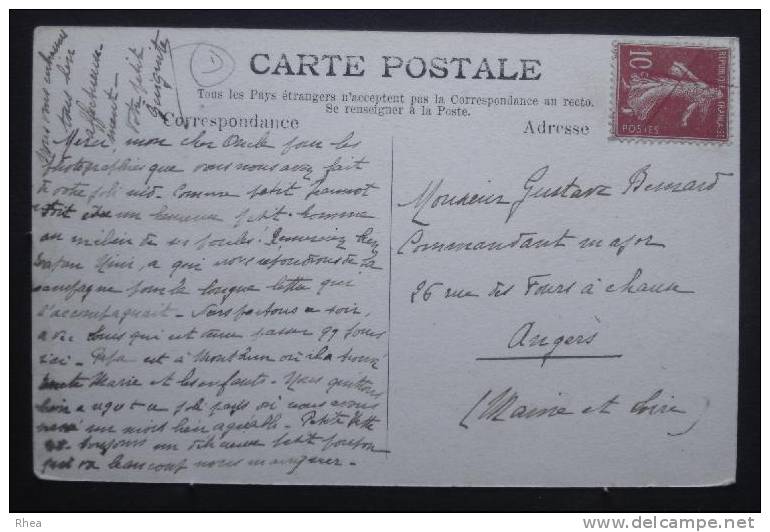 CARTE POSTALE
Tous les Pays étrangers n'acceptent pas la Correspondance au recto.
Se renseigner à la Poste.
Correspondance
Adresse
10c
REPUBLIQUE FRANÇAISE
POSTES
Merci, mon cher Oncle pour les
photographies que vous nous avez fait
de votre joli nid. Comme petit
doit être un heureux petit homme
au milieu de ses poules! Remerciez
a qui nous répondrons de la
campagne pour la longue lettre qui
l'accompagnait. Nous partons ce soir,
avec qui est venu passer jours
ici. Papa est à où il a trouvé
tante Marie et les enfants. Nous quittons
bien à ce joli pays où nous avons
passé un mois bien agréable. Petite
est toujours un petit poupon
qui va beaucoup nous manquer.
tous bien
affectueuse-
ment
votre petit
Monsieur Gustave Bernard
Commandant major
26 rue des Fours à chaux
Angers
(Maine et Loire)
Rhea
delcampe.net